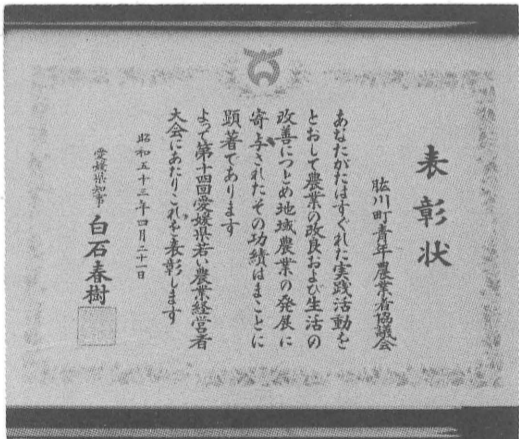 表彰状
肱川町青年農業者協議会
あなたがたはすぐれた実践活動を
とおして農業の改良および生活の
改善につとめ地域農業の発展に
寄与されたその功績はまことに
顕著であります
よって第十四回愛媛県若い農業経営者
大会にあたりこれを表彰します
昭和五十三年四月二十一日
愛媛県知事 白石春樹